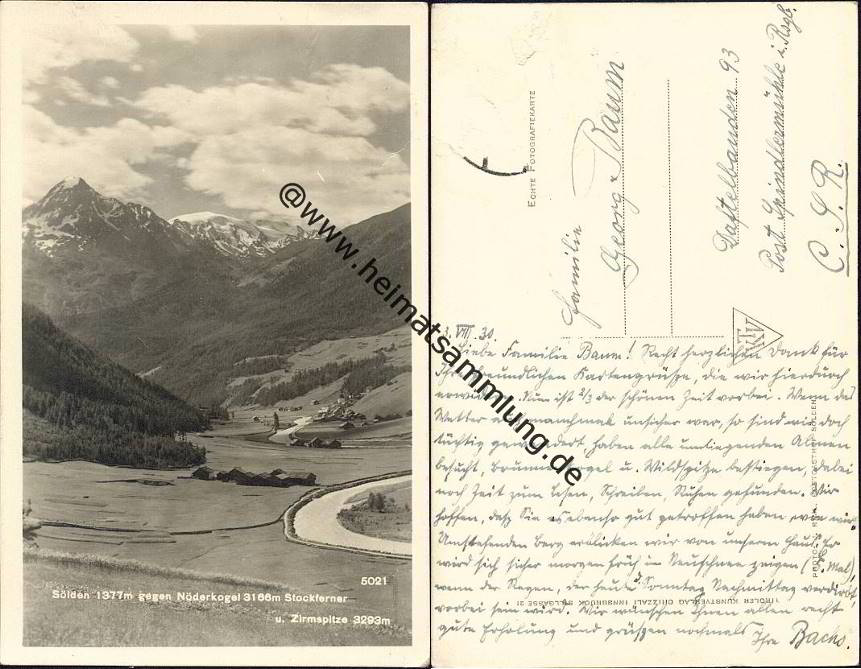 5021
Sölden 1377m gegen Nöderkogel 3166m Stockferner
u. Zirmspitze 3293m
@www.heimatsammlung.de
ECHTE FOTOGRAFIEKARTE
Familie
Georg Baum
Daftelbauden 93
Post Spindlermühle i. Rsgb.
C. S. R.
VIII. 30
Liebe Familie Baum! Recht herzlichen Dank für
Ihre freundlichen Kartengrüsse, die wir hierdurch
Nun ist 2/3 der schönen Zeit vorbei. Wenn das
Wetter auch manchmal unsicher war, so sind wir doch
tüchtig gewandert, haben alle umliegenden Almen
besucht, Brunnenkogel u. Wildspitze bestiegen, dabei
noch Zeit zum Lesen, Schreiben, Ruhen gefunden. Wir
hoffen, daß Sie es ebenso gut getroffen haben, wie wir.
Umstehenden Berg erblicken wir von unserm Haus. Er
wird sich sicher morgen früh im Neuschnee zeigen
wenn der Regen, der heute Sonntag Nachmittag verdirbt,
vorbei sein wird. Wir wünschen Ihnen allen recht
gute Erholung und grüßen nochmals Ihre Bachs.
TIROLER KUNSTVERLAG CHIZZALI INNSBRUCK